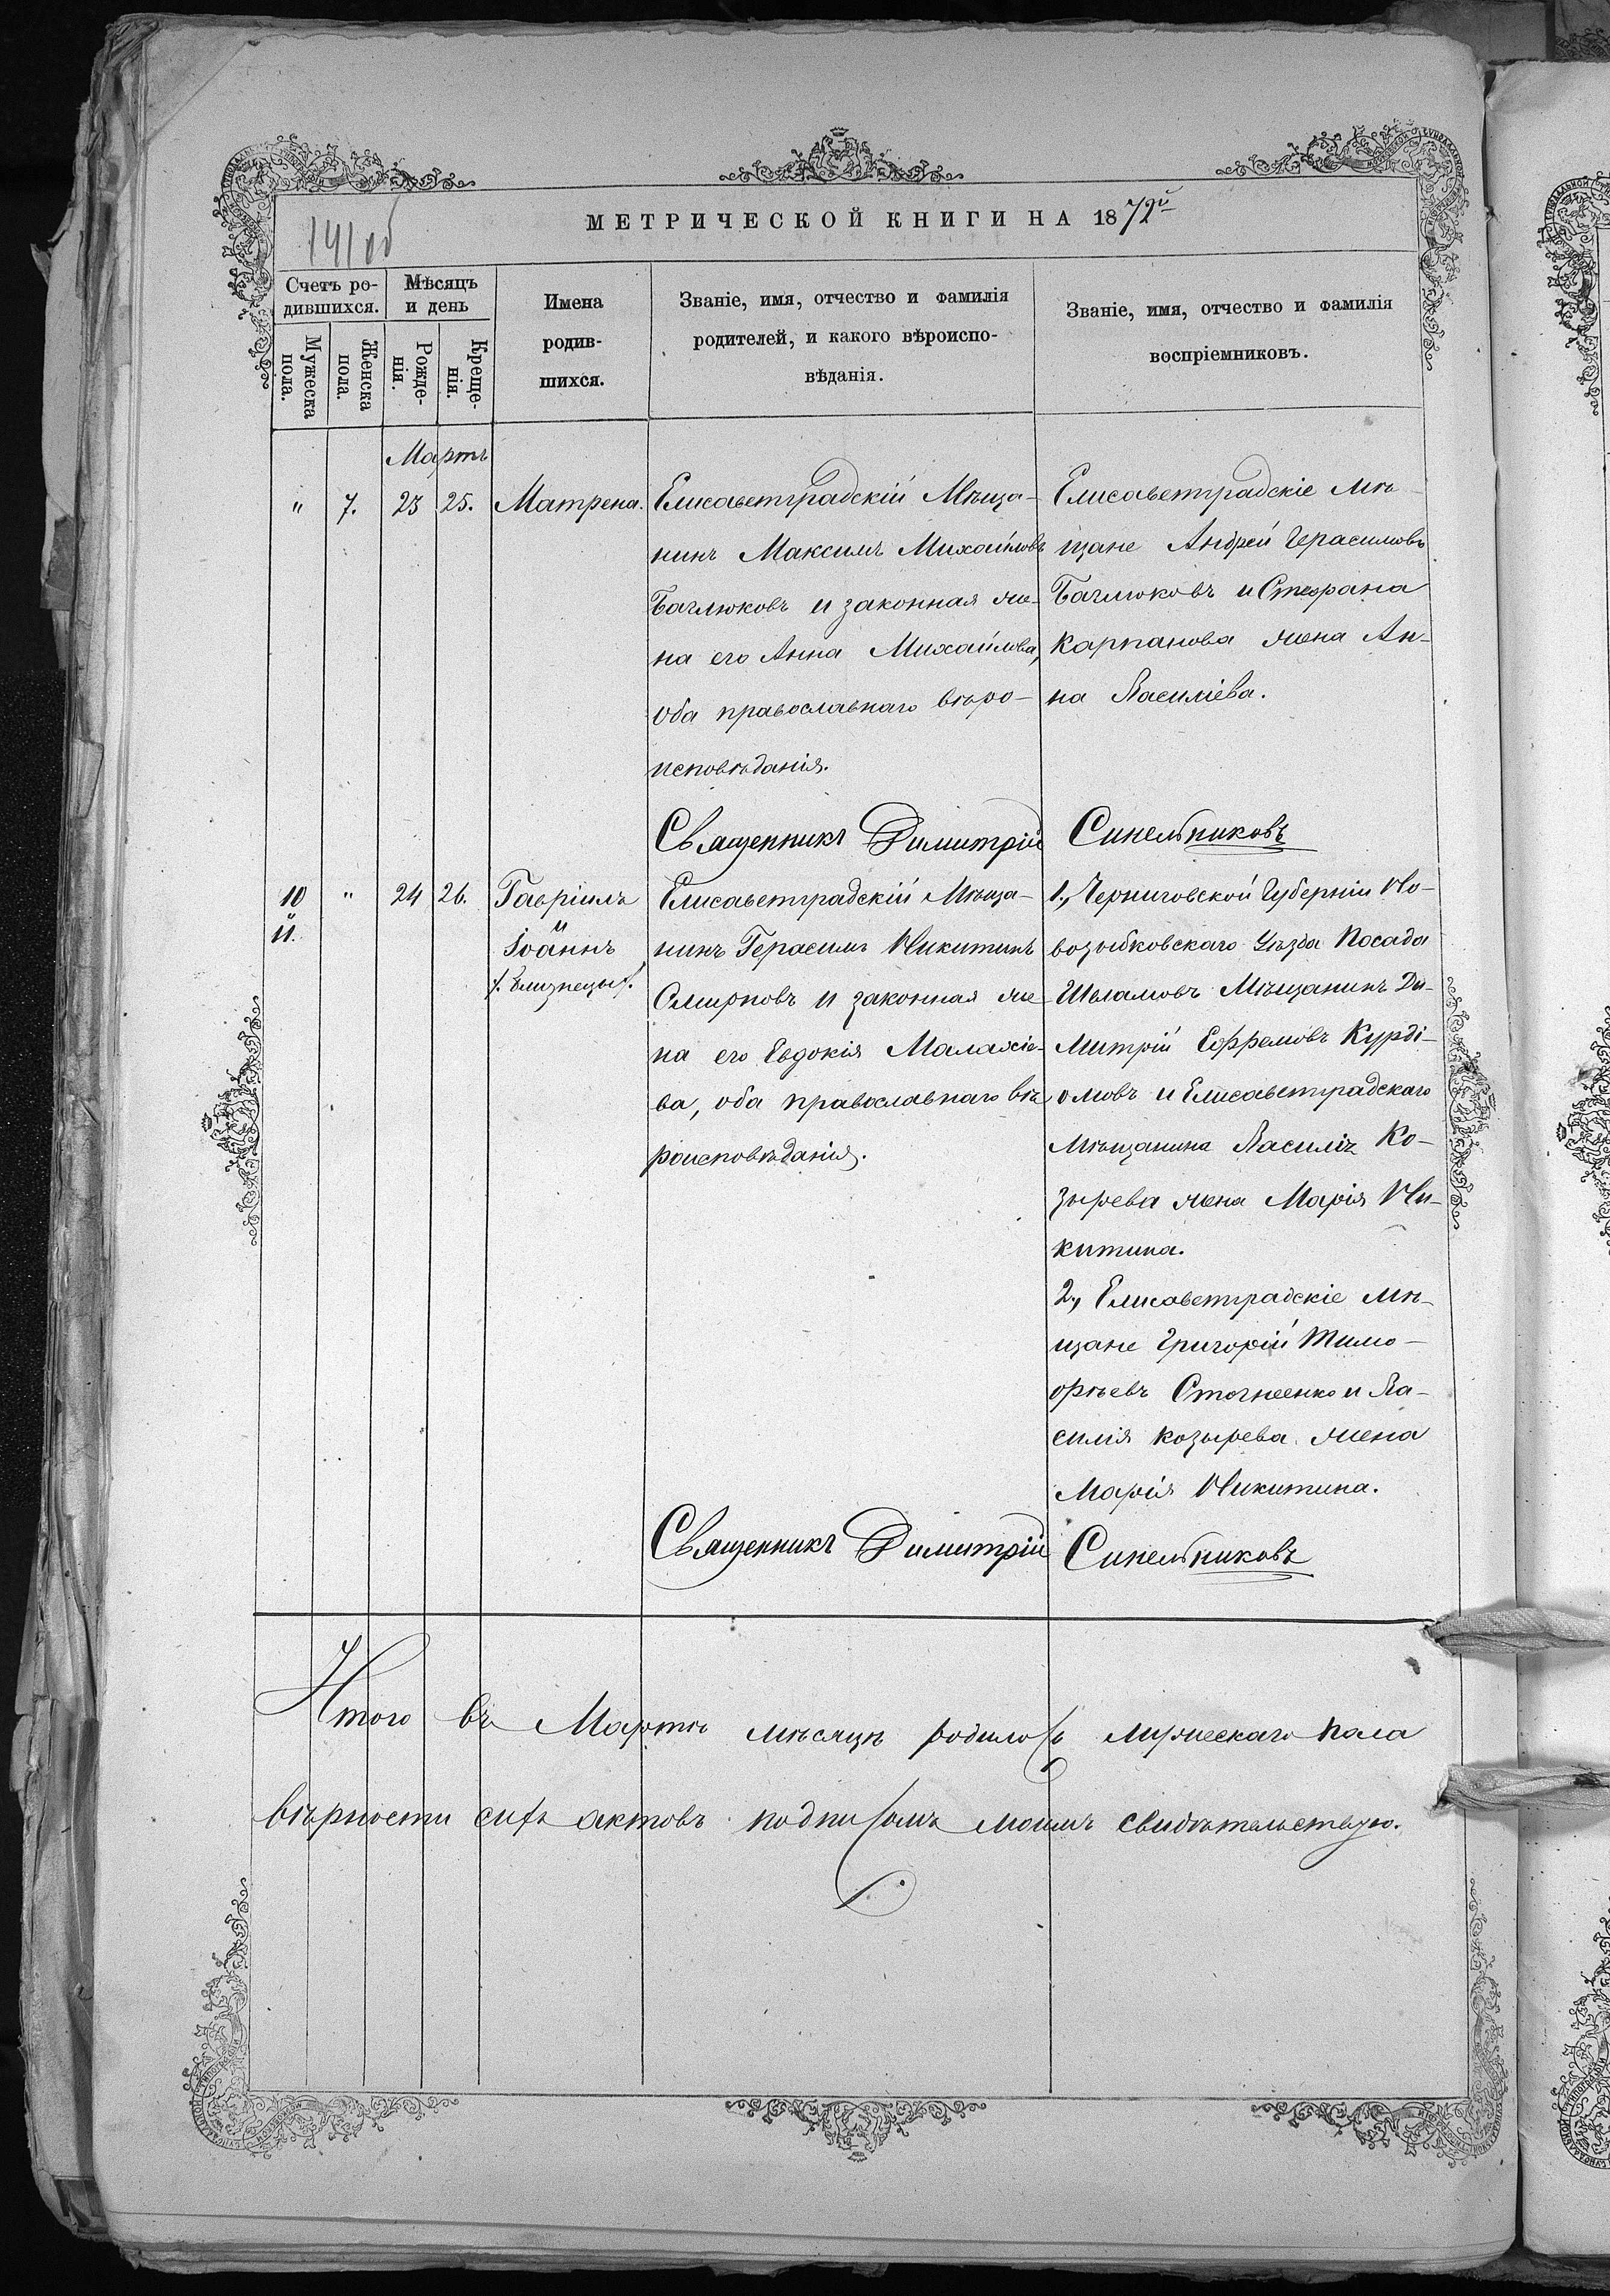 141 об
МЕТРИЧЕСКОЙ КНИГИ НА 1872й
Счетъ ро-
дившихся.
Мѣсяцъ
и день
Имена
родив-
шихся.
Званіе, имя, отчество и фамилія
родителей, и какого вѣроиспо-
вѣданія.
Званіе, имя, отчество и фамилія
воспріемниковъ.
Мужеска
пола.
Женска
пола.
Рожде-
нія.
Креще-
нія.
Мартъ
" 7. 23 25. Матрена.
Елисаветградскій Мѣща-
нинъ Максимъ Михайловъ
Баглюковъ и законная же-
на его Анна Михаилова,
оба православнаго вѣро-
исповѣданія.
Елисаветградскіе мѣ-
щане Андрей Герасимовъ
Баглюковъ и Стефана
Карпанова жена Ан-
на Василіева.
Священникъ Димитрій Синельниковъ
10 " 24 26. Гавріилъ
и
11.
и
Іоаннъ
/. близнецы /.
Елисаветградскій Мѣща-
нинъ Герасимъ Никитинъ
Смирновъ и законная же-
на его Евдокія Малахіе-
ва, оба православнаго вѣ
роисповѣданія.
1., Черниговской Губерніи Но-
возыбковскаго Уѣзда Посада
Шеламовъ Мѣщанинъ Ди-
митрій Ефремовъ Курді-
омовъ и Елисаветградскаго
Мѣщанина Василія Ко-
зырева жена Марія Ни-
китина.
2., Елисаветградскіе мѣ-
щане Григорій Тимо-
фѣевъ Стогнеенко и Ва-
силія Козырева жена
Марія Никитина.
Священникъ Димитрій Синельниковъ
Итого въ Мартѣ мѣсяцѣ родилось мужескаго пола
вѣрности сихъ актовъ подписомъ моимъ свидѣтельствую.